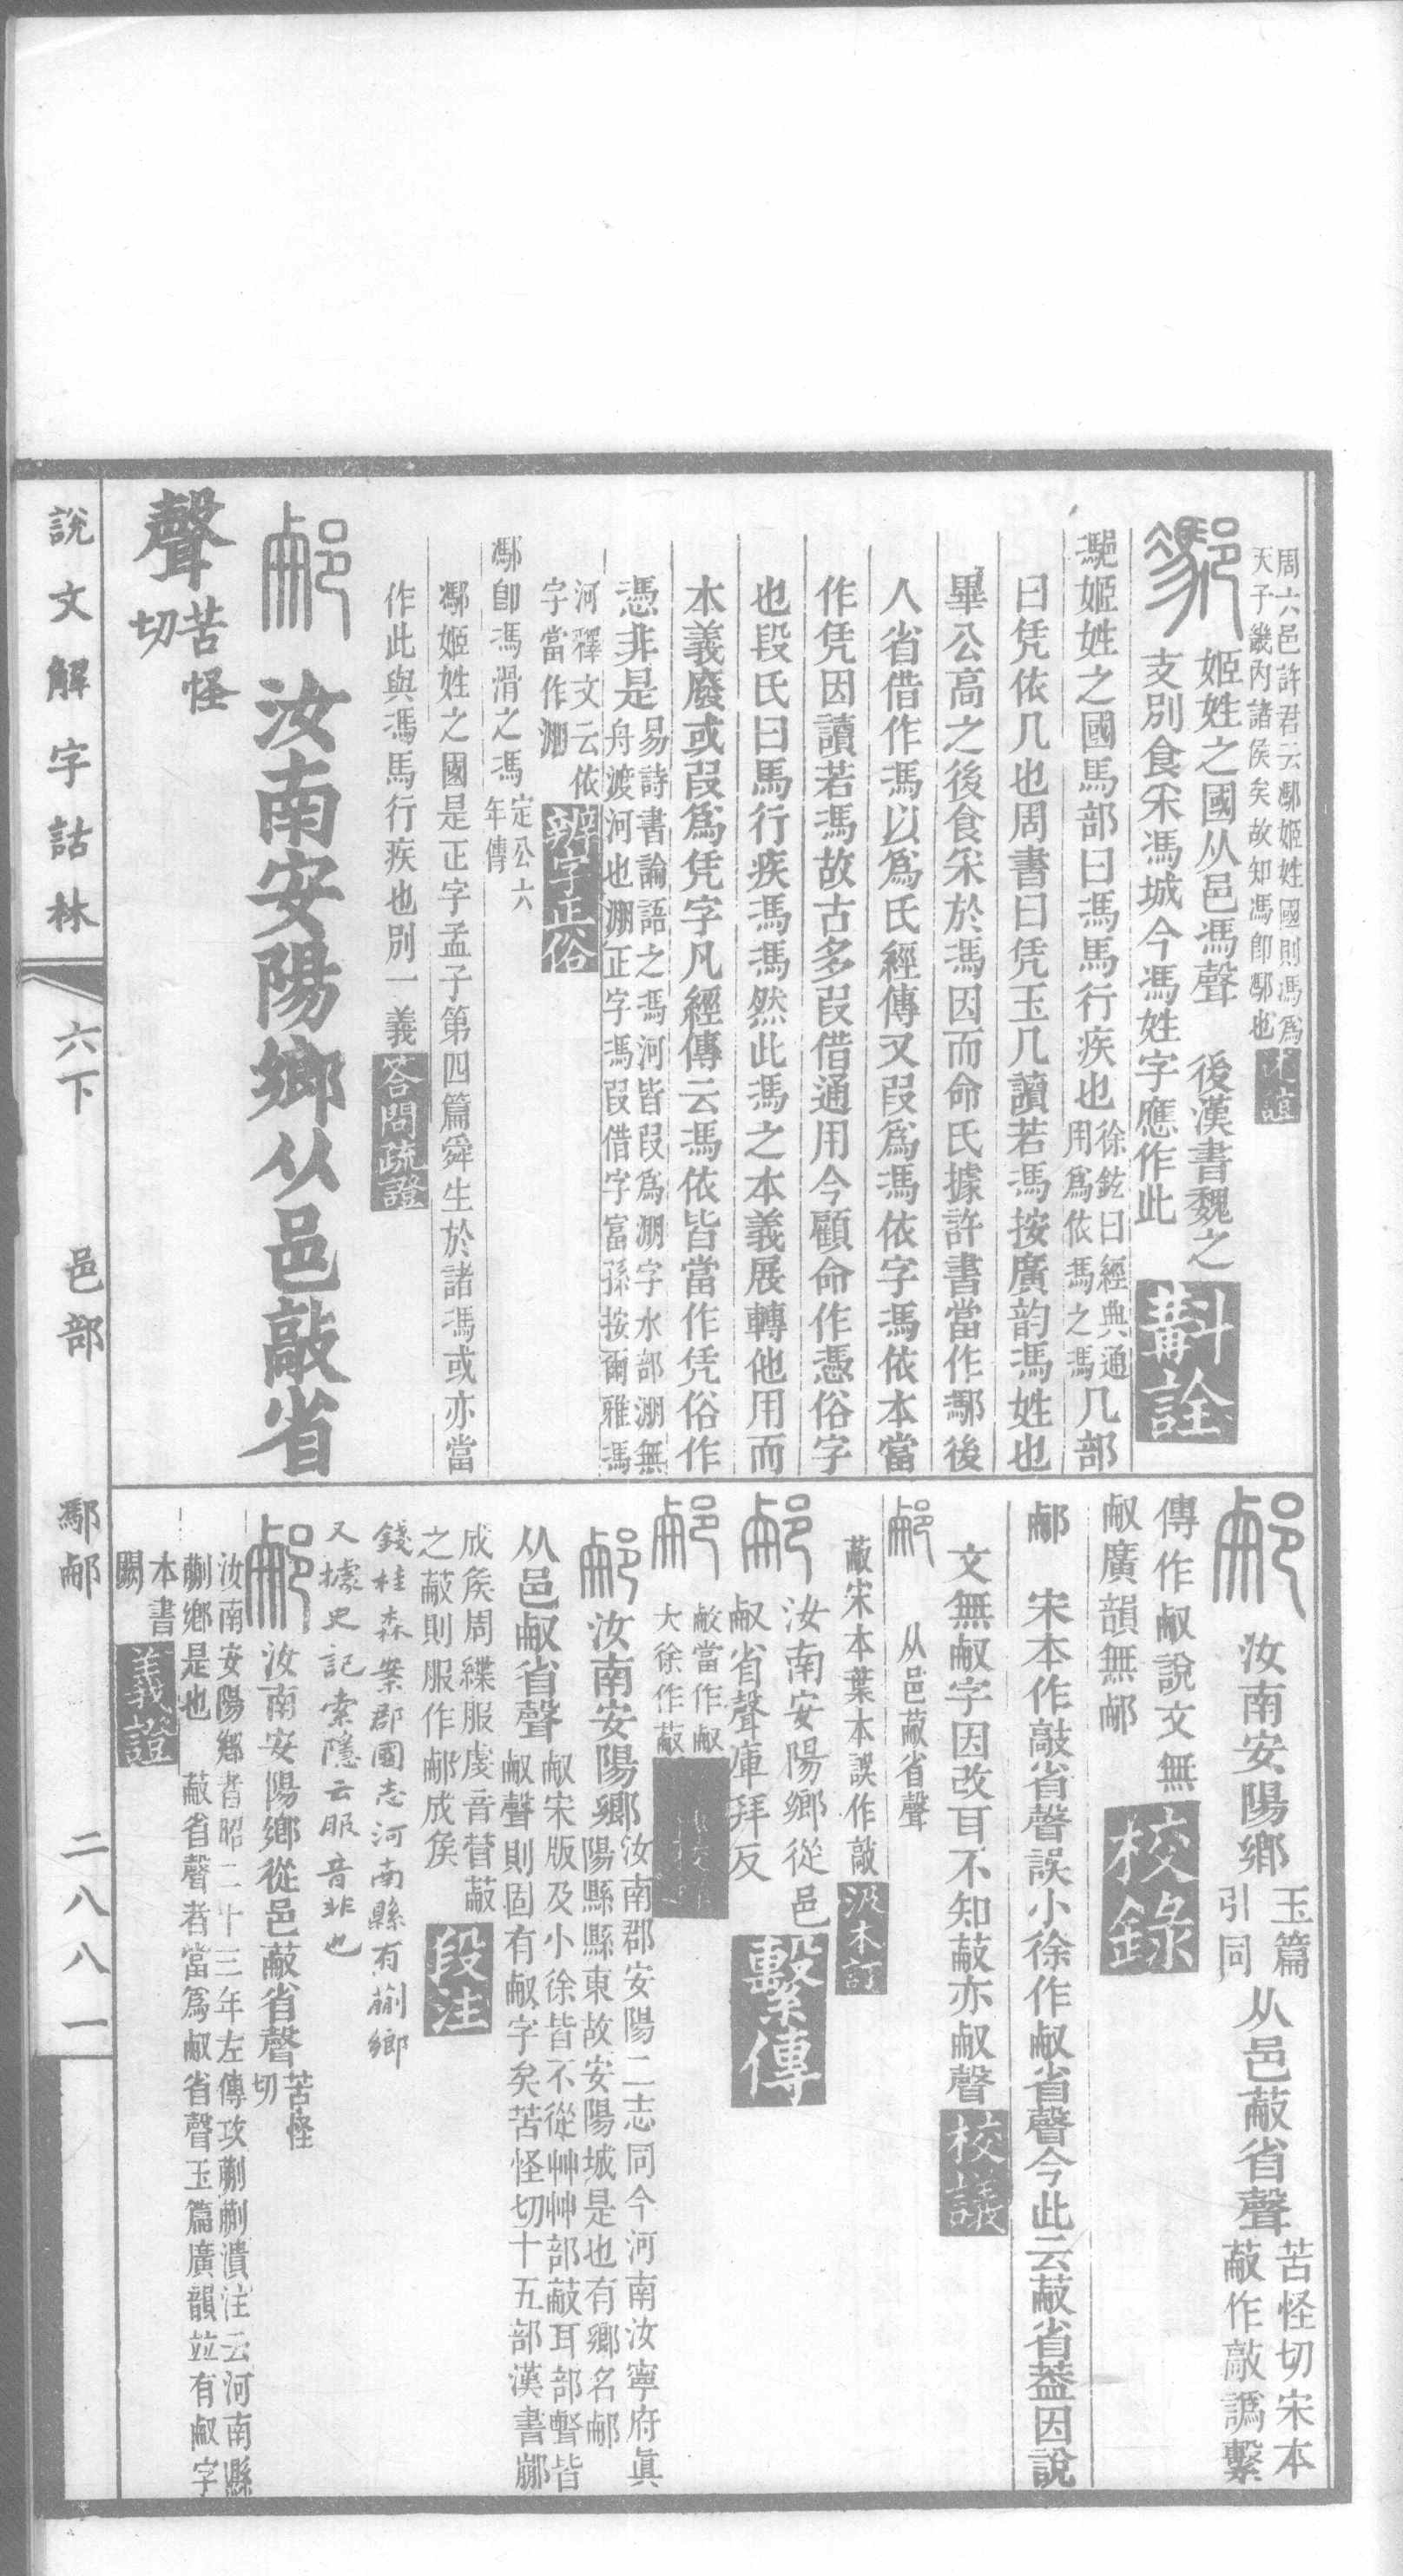 周六邑許君云鄸姬姓國則馮爲
天子畿內諸侯矣故知馮卽鄸也
姬姓之國从邑馮聲 後漢書魏之
支別食采馮城今馮姓字應作此 斠詮
姬姓之國馬部曰馮馬行疾也徐鉉曰經典通用爲依馮之馮几部
曰凭依几也周書曰凭玉几讀若馮按廣韵馮姓也
畢公高之後食采於馮因而命氏據許書當作𨞄後
人省借作馮以爲氏經傳又叚爲馮依字馮依本當
作凭因讀若馮故古多叚借通用今顧命作憑俗字
也段氏曰馬行疾馮馮然此馮之本義展轉他用而
本義廢或叚爲凭字凡經傳云馮依皆當作凭俗作
憑非是易詩書論語之馮河皆叚爲淜字水部淜無
舟渡河也淜正字馮叚借字富孫按爾雅馮
河釋文云依
字當作淜 辨字正俗
𨞄卽馮滑之馮定公六年傳
𨞄姬姓之國是正字孟子第四篇舜生於諸馮或亦當
作此與馮馬行疾也別一義 答問疏證
汝南安陽鄉从邑蔽省
聲苦怪切
說文解字詁林 六下 邑部 𨞄䣂 二八八一
汝南安陽鄉玉篇引同从邑蔽省聲苦怪切宋本蔽作敲譌繫
傳作㕟說文無
㕟廣韻無䣂 校錄
䣂 宋本作敲省聲誤小徐作㕟省聲今此云蔽省葢因說
文無㕟字因改耳不知蔽亦㕟聲 校議
从邑蔽省聲
蔽宋本葉本誤作敲 汲本訂
汝南安陽鄉從邑
㕟省聲庫拜反 繫傳
𢿨當作㕟
大徐作蔽
汝南安陽鄉汝南郡安陽二志同今河南汝寧府眞
陽縣縣東故安陽城是也有鄉名䣂
从邑㕟省聲㕟宋版及小徐皆不從艸艸部蔽耳部聲皆
㕟聲則固有㕟字矣苦怪切十五部漢書
成矦周緤服虔音菅蔽
之蔽則服作䣂成矦 段注
錢桂森案郡國志河南縣有蒯鄉
又據史記索隱云服音非也
汝南安陽鄉從邑蔽省聲苦怪切
汝南安陽鄉者昭二十三年左傳攻蒯蒯潰注云河南縣
蒯鄉是也 蔽省聲者當爲㕟省聲玉篇廣韻竝有㕟字
本書
闕 義證